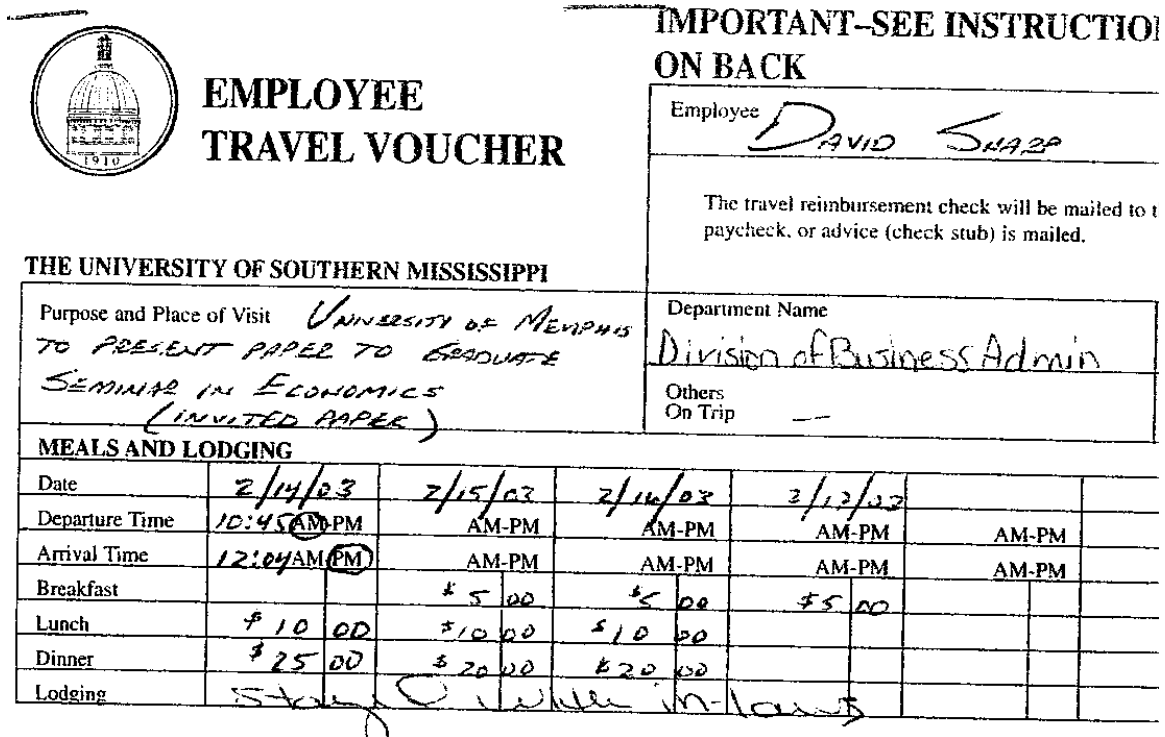 IMPORTANT–SEE INSTRUCTION
ON BACK
1910
EMPLOYEE
TRAVEL VOUCHER
Employee DAVID SHARP
The travel reimbursement check will be mailed to t
paycheck, or advice (check stub) is mailed.
THE UNIVERSITY OF SOUTHERN MISSISSIPPI
Purpose and Place of Visit UNIVERSITY OF MEMPHIS
TO PRESENT PAPER TO GRADUATE
SEMINAR IN ECONOMICS
(INVITED PAPER)
Department Name
Division of Business Admin
Others
On Trip —
MEALS AND LODGING
Date 2/14/03 2/15/03 2/16/03
Departure Time 10:45 AM-PM AM-PM AM-PM AM-PM AM-PM
Arrival Time 12:04 AM-PM AM-PM AM-PM AM-PM AM-PM
Breakfast $5 00 $5 00 $5 00
Lunch $10 00 $10 00 $10 00
Dinner $25 00 $20 00 $20 00
Lodging Stayed with in-laws